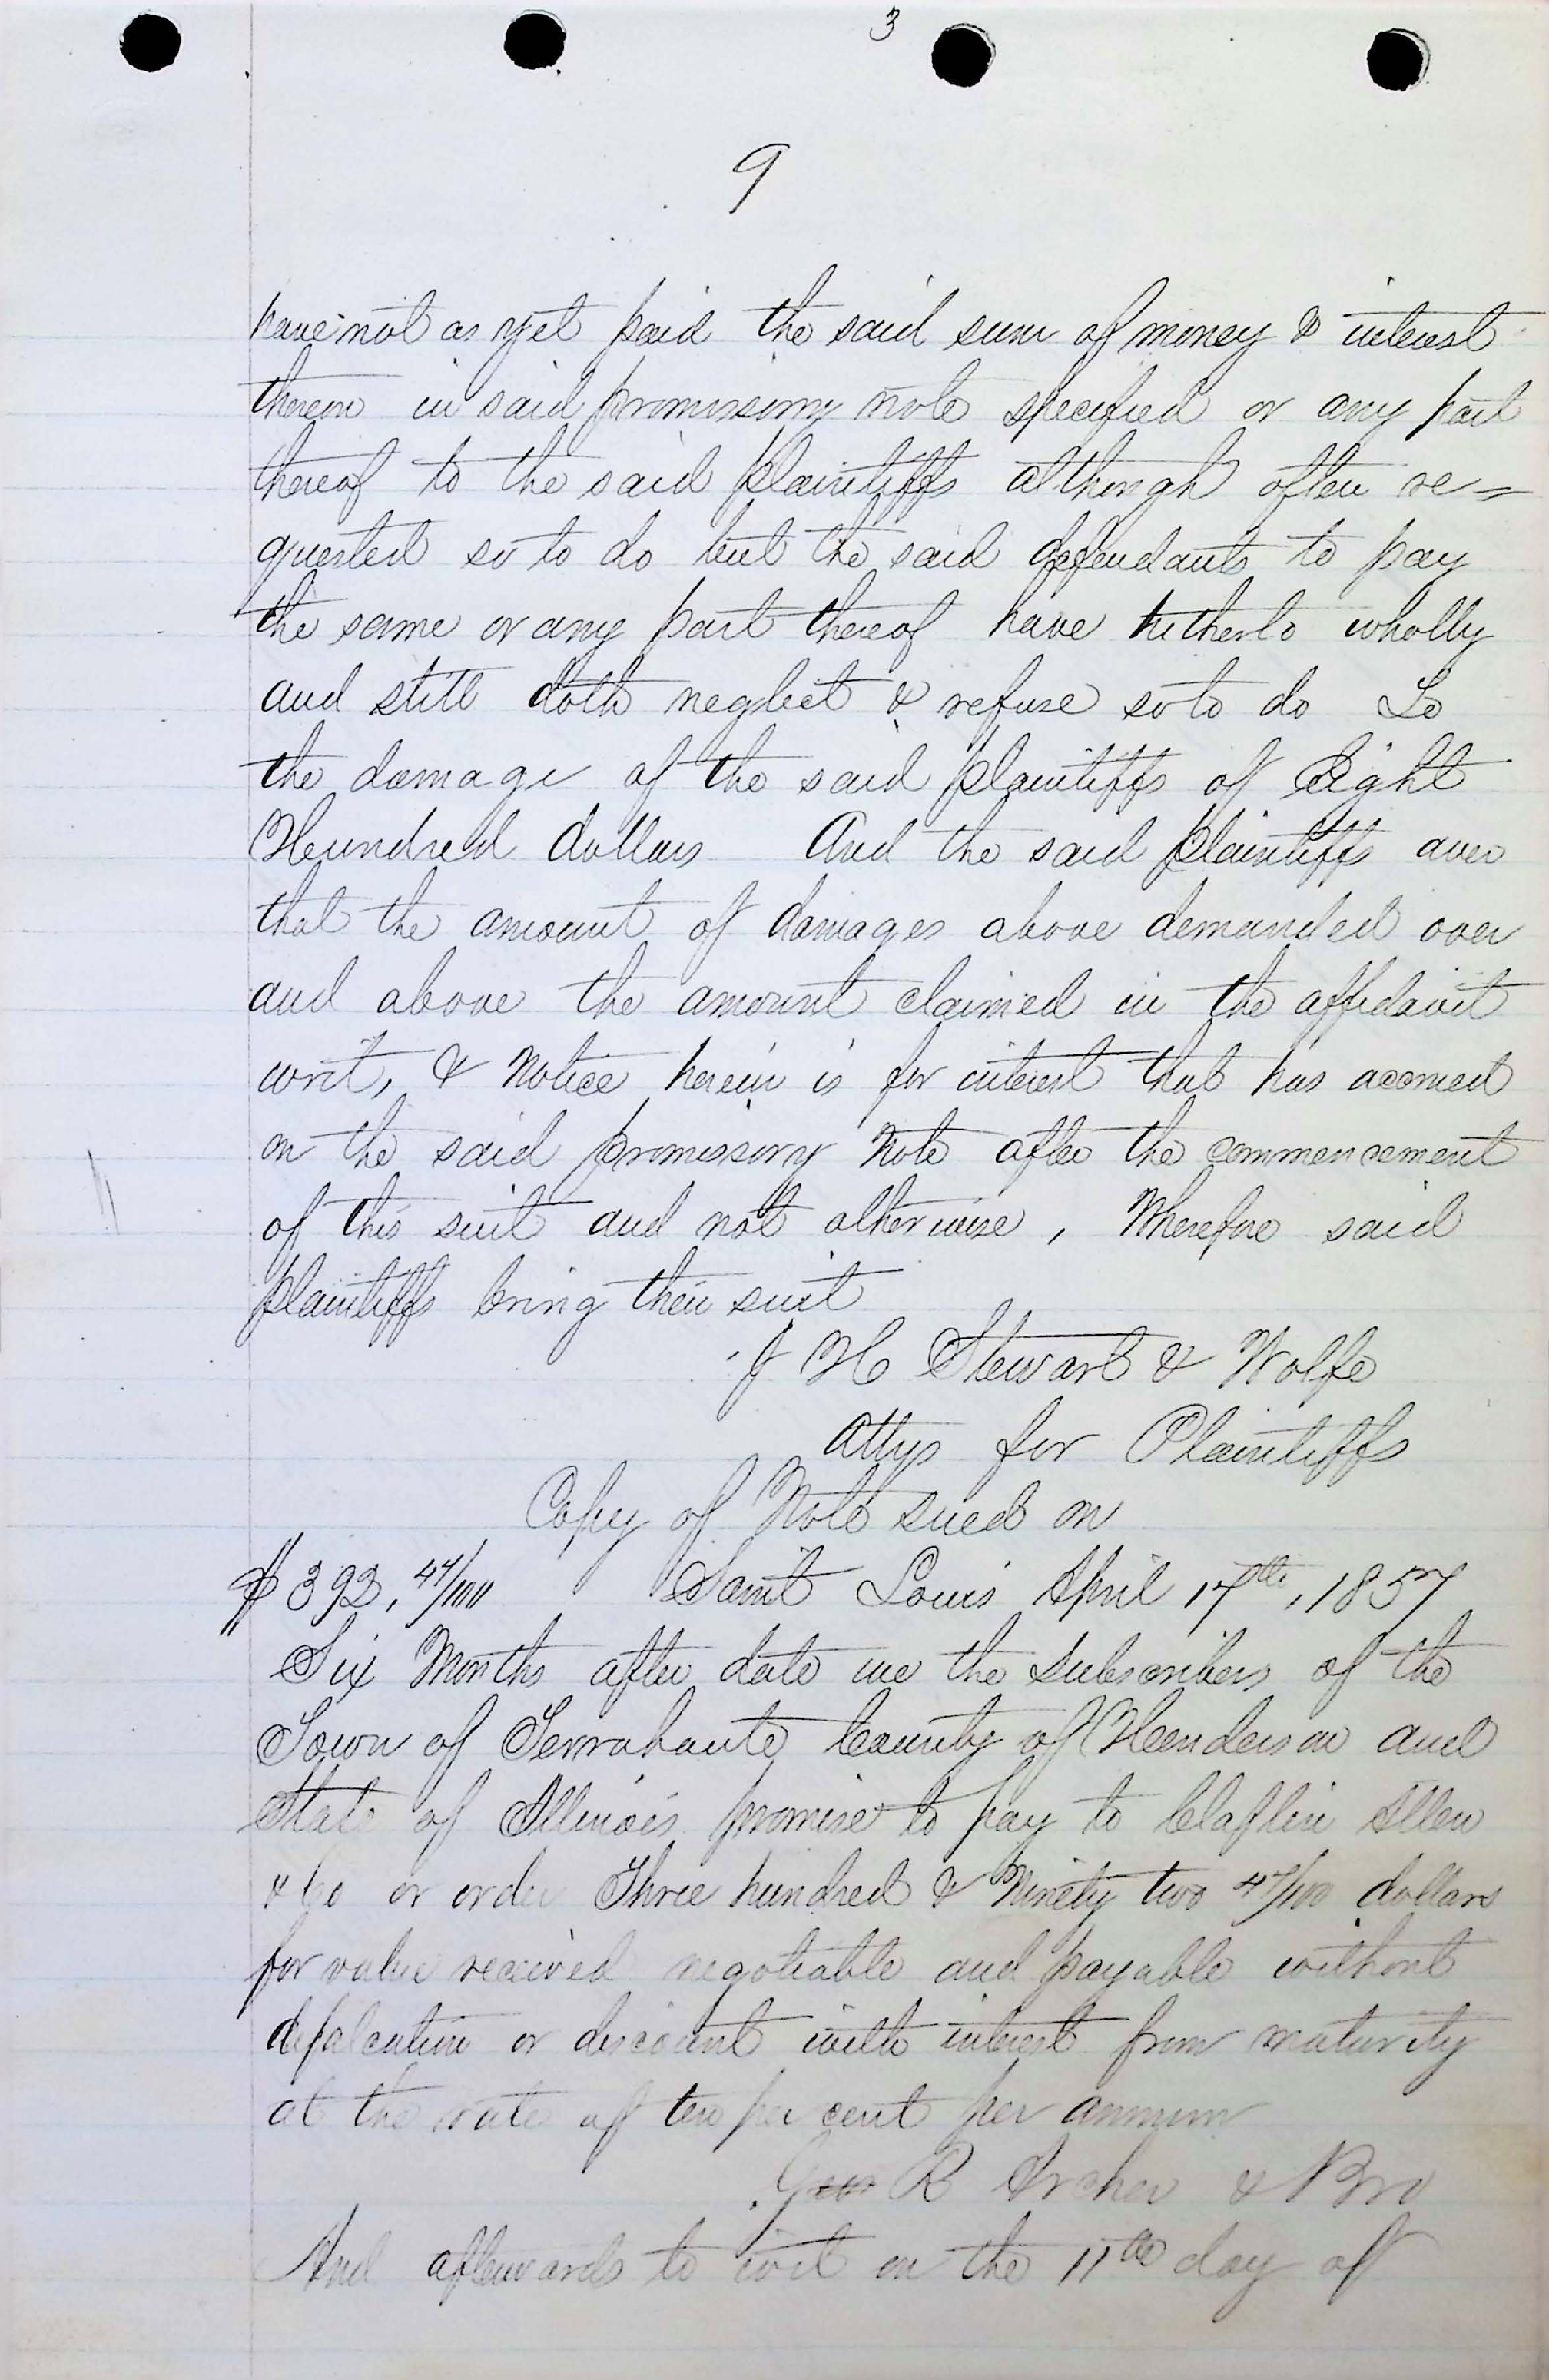 3
9
have not as yet paid the said sum of money & interest
thereon in said promissory note specified or any part
thereof to the said plaintiffs although often re=
quested so to do but the said defendants to pay
the same or any part thereof have hitherto wholly
and still doth neglect & refuse so to do To
the damage of the said plaintiffs of Eight
Hundred dollars And the said plaintiffs aver
that the amount of damages above demanded over
and above the amount claimed in the affidavit
writ, & Notice herein is for interest that has accrued
on the said promissory Note after the commencement
of this suit and not otherwise, Wherefore said
plaintiffs bring their suit
J H Stewart & Wolfe
Attys for Plaintiffs
Copy of Note sued on
$392,47/100 Saint Louis April 17th, 1857
Six Months after date we the subscribers of the
Town of Terrahaute County of Henderson and
State of Illinois promise to pay to Claflin Allen
& Co or order Three hundred & Ninety two 47/100 dollars
for value received negotiable and payable without
defalcation or discount with interest from maturity
at the rate of ten per cent per annum
Geo R Archer & Bro
And afterwards to wit on the 11th day of